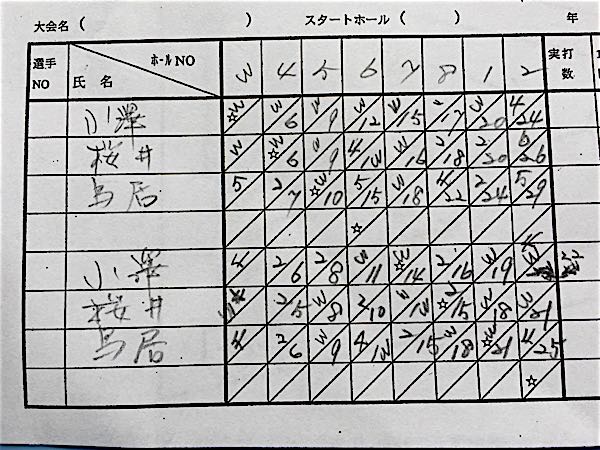 大会名 ( ) スタートホール ( ) 年
選手NO 氏名 ホールNO 3 4 5 6 7 8 1 2 実打数
小澤 ☆3 3/6 3/9 3/12 3/15 2/17 3/20 4/24
桜井 3 ☆3/6 3/9 4/13 3/16 2/18 2/20 6/26
鳥居 5 2/7 ☆3/10 5/15 3/18 4/22 2/24 5/29
☆
小澤 4 2/6 2/8 3/11 ☆3/14 2/16 3/19
桜井 2/5 3/8 2/10 3/13 ☆2/15 3/18 3/21
鳥居 4 2/6 3/9 4/13 2/15 3/18 ☆3/21 4/25
☆